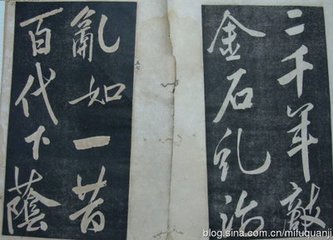 二千年敵
金石糺治
亂如一昔
百代下蔭
blog.sina.com.cn/mifuquanji